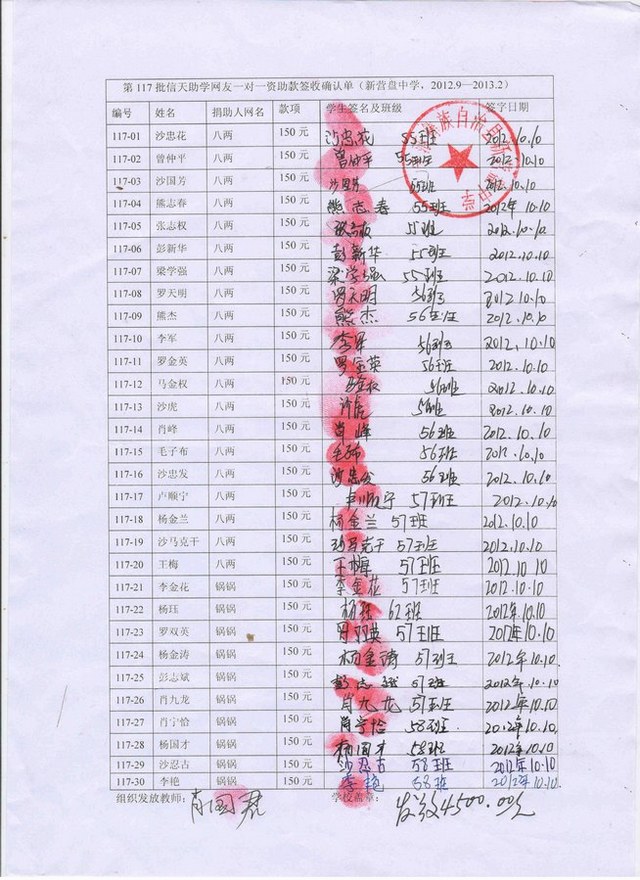 第 117 批信天助学网友一对一资助款签收确认单（新营盘中学，2012.9—2013.2）
编号 姓名 捐助人网名 款项 学生签名及班级 签字日期
117-01 沙忠花 八两 150 元 沙忠花 55班 2012.10.10
117-02 曾仲平 八两 150 元 曾仲平 55班 2012.10.10
117-03 沙国芳 八两 150 元 沙国芳 55班 2012.10.10
117-04 熊志春 八两 150 元 熊志春 55班 2012年10.10
117-05 张志权 八两 150 元 张志权 55班 2012.10.10
117-06 彭新华 八两 150 元 彭新华 55班 2012.10.10
117-07 梁学强 八两 150 元 梁学强 55班 2012.10.10
117-08 罗天明 八两 150 元 罗天明 56班 2012.10.10
117-09 熊杰 八两 150 元 熊杰 56班 2012.10.10
117-10 李军 八两 150 元 李军 56班 2012.10.10
117-11 罗金英 八两 150 元 罗金英 56班 2012.10.10
117-12 马金权 八两 150 元 马金权 56班 2012.10.10
117-13 沙虎 八两 150 元 沙虎 56班 2012.10.10
117-14 肖峰 八两 150 元 肖峰 56班 2012.10.10
117-15 毛子布 八两 150 元 56班 2012.10.10
117-16 沙忠发 八两 150 元 沙忠发 56班 2012.10.10
117-17 卢顺宁 八两 150 元 卢顺宁 57班 2012.10.10
117-18 杨金兰 八两 150 元 杨金兰 57班 2012.10.10
117-19 沙马克干 八两 150 元 沙马克干 57班 2012.10.10
117-20 王梅 八两 150 元 王梅 57班 2012.10.10
117-21 李金花 锅锅 150 元 李金花 57班 2012.10.10
117-22 杨珏 锅锅 150 元 杨珏 62班 2012年10.10
117-23 罗双英 锅锅 150 元 罗双英 57班 2012年10.10
117-24 杨金涛 锅锅 150 元 杨金涛 57班 2012年10.10
117-25 彭志斌 锅锅 150 元 彭志斌 57班 2012年10.10
117-26 肖九龙 锅锅 150 元 肖九龙 57班 2012年10.10
117-27 肖宁恰 锅锅 150 元 肖宁恰 58班 2012年10.10
117-28 杨国才 锅锅 150 元 杨国才 58班 2012年10.10
117-29 沙忍古 锅锅 150 元 沙忍古 58班 2012年10.10
117-30 李艳 锅锅 150 元 李艳 58班 2012年10.10
组织发放教师： 肖国君 学校盖章： 发放4500.00元
族自治县新营盘中学